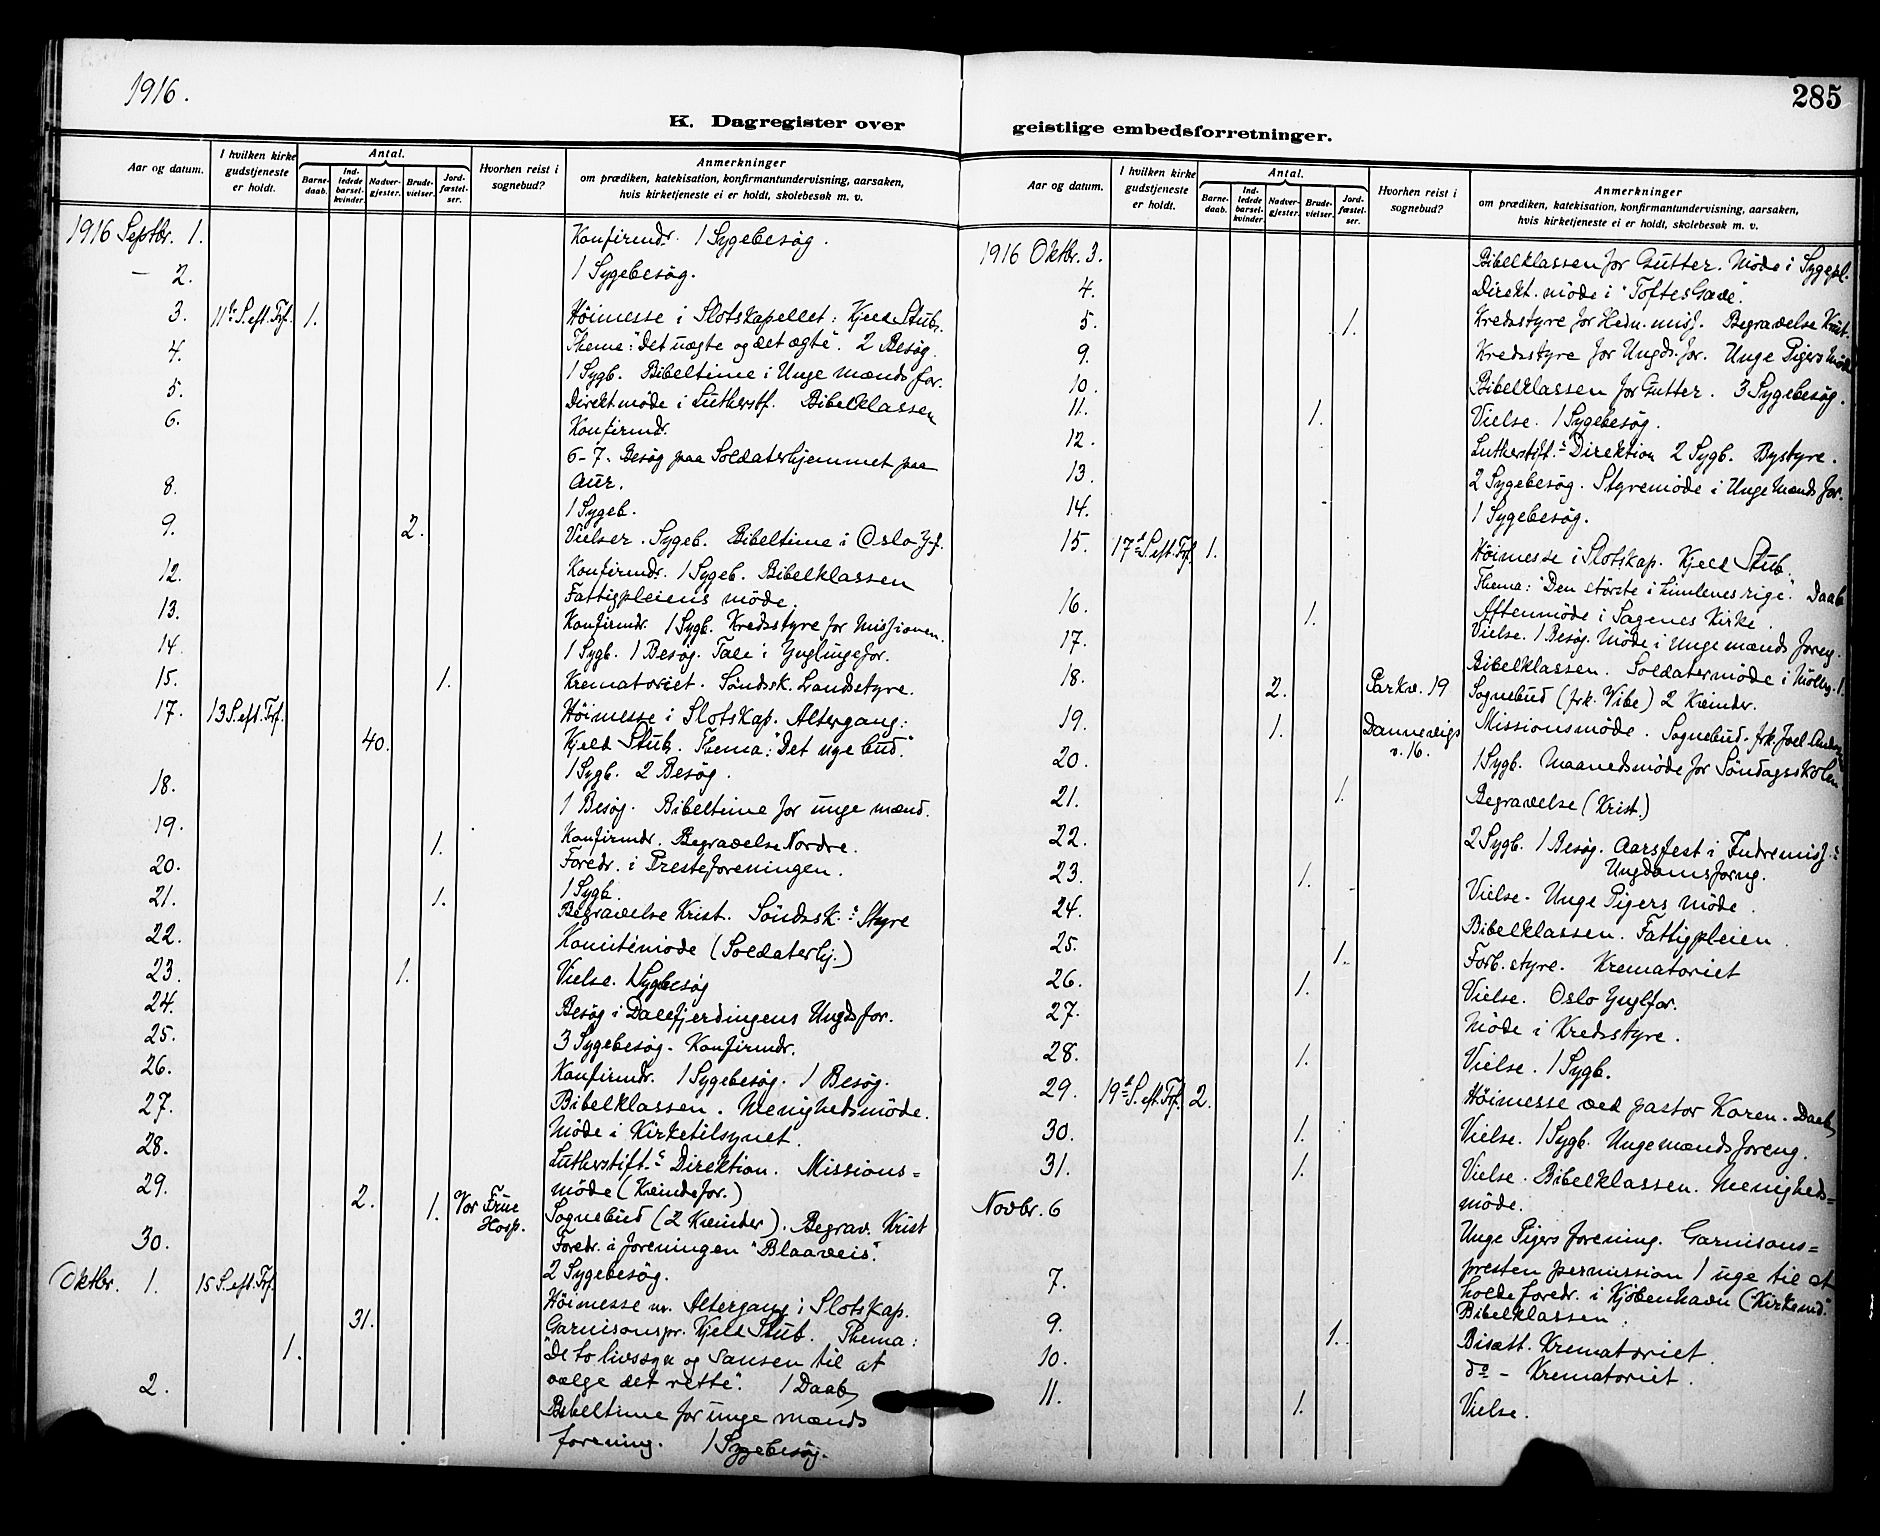 1916.
K. Dagregister over
Aar og datum.
I hvilken kirke gudstjeneste er holdt.
Antal.
Barne-daab.
Ind-ledede barsel-kvinder.
Nadver-gjester.
Brude-vielser.
Jord-fæstel-ser.
Hvorhen reist i sognebud?
Anmerkninger
om prædiken, katekisation, konfirmantundervisning, aarsaken,
hvis kirketjeneste ei er holdt, skolebesøk m. v.
1916 Septbr. 1. Konfirmdr. 1 Sygebesøg.
– 2. 1 Sygebesøg.
3. 11te S. eft. Trf. 1. Høimesse i Slotskapellet: Kjeld Stub.
Thema: "Det uægte og det ægte". 2 Besøg.
4. 1 Sygb. Bibeltime i Unge Mænds for.
5. Direkt. møde i Lutherstf. Bibelklassen
6. Konfirmdr.
6–7. Besøg paa Soldaterhjemmet paa
Aur.
8. 1 Sygeb.
9. 2. Vielser. Sygeb. Bibeltime i Oslo Y-f.
12. Konfirmdr. 1 Sygeb. Bibelklassen
Fattigpleiens møde.
13. Konfirmdr. 1 Sygb. Kredsstyre for Missionen.
14. 1 Sygb. 1 Besøg. Tale i Ynglingefor.
15. 1. Krematoriet. Søndssk. Landsstyre.
17. 13 S. eft. Trf. Høimesse i Slotskap. Altergang:
40. Kjeld Stub. Thema: "Det nye bud."
1 Sygb. 2 Besøg.
18. 1 Besøg. Bibeltime for unge mænd.
19. 1. Konfirmdr. Begravelse Nordre.
20. Foredr. i Presteforeningen.
21. 1. 1 Sygb.
Begravelse Krist. Søndssk.s Styre
22. Komitémøde (Soldaterhj.)
23. 1. Vielse. 1 Sygbesøg
24. Besøg i Dalefjerdingens Ungdsfor.
25. 3 Sygebesøg. Konfirmdr.
26. Konfirmdr. 1 Sygebesøg. 1 Besøg.
27. Bibelklassen. Menighedsmøde.
Møde i Kirketilsynet.
28. Lutherstift.s Direktion. Missions=
møde (Kvindefor.)
29. 2. 1. Vor Frue Hosp. Sognebud (2 Kvinder). Begrav. Krist
Foredr. i foreningen "Blaaveis".
30. 2 Sygebesøg.
Oktbr. 1. 15 S. eft. Trf. Høimesse m. Altergang i Slotskap.
31. Garnisonspr. Kjeld Stub. Thema:
1. "De to livssyn og sansen til at
vælge det rette". 1 Daab
2. Bibeltime for unge mænds
forening. 1 Sygebesøg.
285
geistlige embedsforretninger.
Aar og datum.
I hvilken kirke gudstjeneste er holdt.
Antal.
Barne-daab.
Ind-ledede barsel-kvinder.
Nadver-gjester.
Brude-vielser.
Jord-fæstel-ser.
Hvorhen reist i sognebud?
Anmerkninger
om prædiken, katekisation, konfirmantundervisning, aarsaken,
hvis kirketjeneste ei er holdt, skolebesøk m. v.
1916 Oktbr. 3. Bibelklassen for Gutter. Møde i Sygepl.
4. Direkt. møde i "Toftes Gave".
5. 1. Kredsstyre for Hedn. miss. Begravelse Krist.
9. Kredsstyre for Ungds. for. Unge Pigers Møde
10. Bibelklassen for Gutter. 3 Sygebesøg.
11. 1. Vielse. 1 Sygebesøg.
12. Lutherstift.s Direktion 2 Sygb. Bystyre.
13. 2 Sygebesøg. Styremøde i Unge Mænds for.
14. 1 Sygebesøg.
15. 17de S. eft. Trf. 1. Høimesse i Slotskap. Kjeld Stub.
Thema: "Den største i himlenes rige". Daab
Aftenmøde i Sagenes Kirke.
16. 1. Vielse. 1 Besøg. Møde i Unge mænds foreng.
17. Bibelklassen. Soldatermøde i Møllg. 1.
18. 2. Parkv. 19 Sognebud (frk. Vibe) 2 Kvinder.
19. 1. Dannevigs v. 16. Missionsmøde. Sognebud. frk. Joel
20. 1 Sygb. Maanedsmøde for Søndagsskolen
21. 1. Begravelse (Krist.)
22. 2 Sygb. 1 Besøg. Aarsfest i Indremiss.s
Ungdomsforng.
23. 1. Vielse. Unge Pigers møde.
24. Bibelklassen. Fattigpleien.
25. 1. Forb. styre. Krematoriet
26. 1. Vielse. Oslo Ynglfor.
27. Møde i Kredsstyre.
28. 1. Vielse. 1 Sygb.
29. 19de S. eft. Trf. 2. Høimesse ved pastor Koren. Daab
30. 1. Vielse. 1 Sygb. Unge mænds foreng.
31. 1. Vielse. Bibelklassen. Menigheds=
møde.
Novbr. 6 Unge Pigers forening. Garnisons=
presten permission 1 uge til at
7. holde foredr. i Kjøbenhavn (Kirkemd."
Bibelklassen.
9. 1. Bisætt. Krematoriet.
10. do – Krematoriet.
11. 1. Vielse.